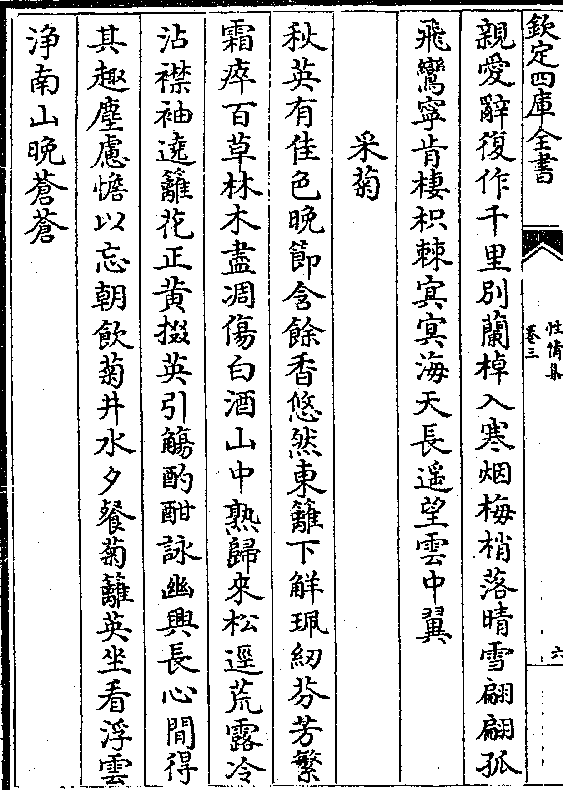 欽定四庫全書
性情集
卷三
六
親愛辭復作千里別蘭棹入寒烟梅梢落晴雪翩翩孤
飛鸞寧肯棲枳棘㝠㝠海天長遥望雲中翼
采菊
秋英有佳色晩節含餘香悠然東籬下解珮紉芬芳繁
霜瘁百草林木盡凋傷白酒山中熟歸來松逕荒露冷
沾襟袖遶籬花正黄掇英引觴酌酣詠幽興長心間得
其趣塵慮憺以忘朝飲菊井水夕餐菊籬英坐看浮雲
浄南山晚蒼蒼